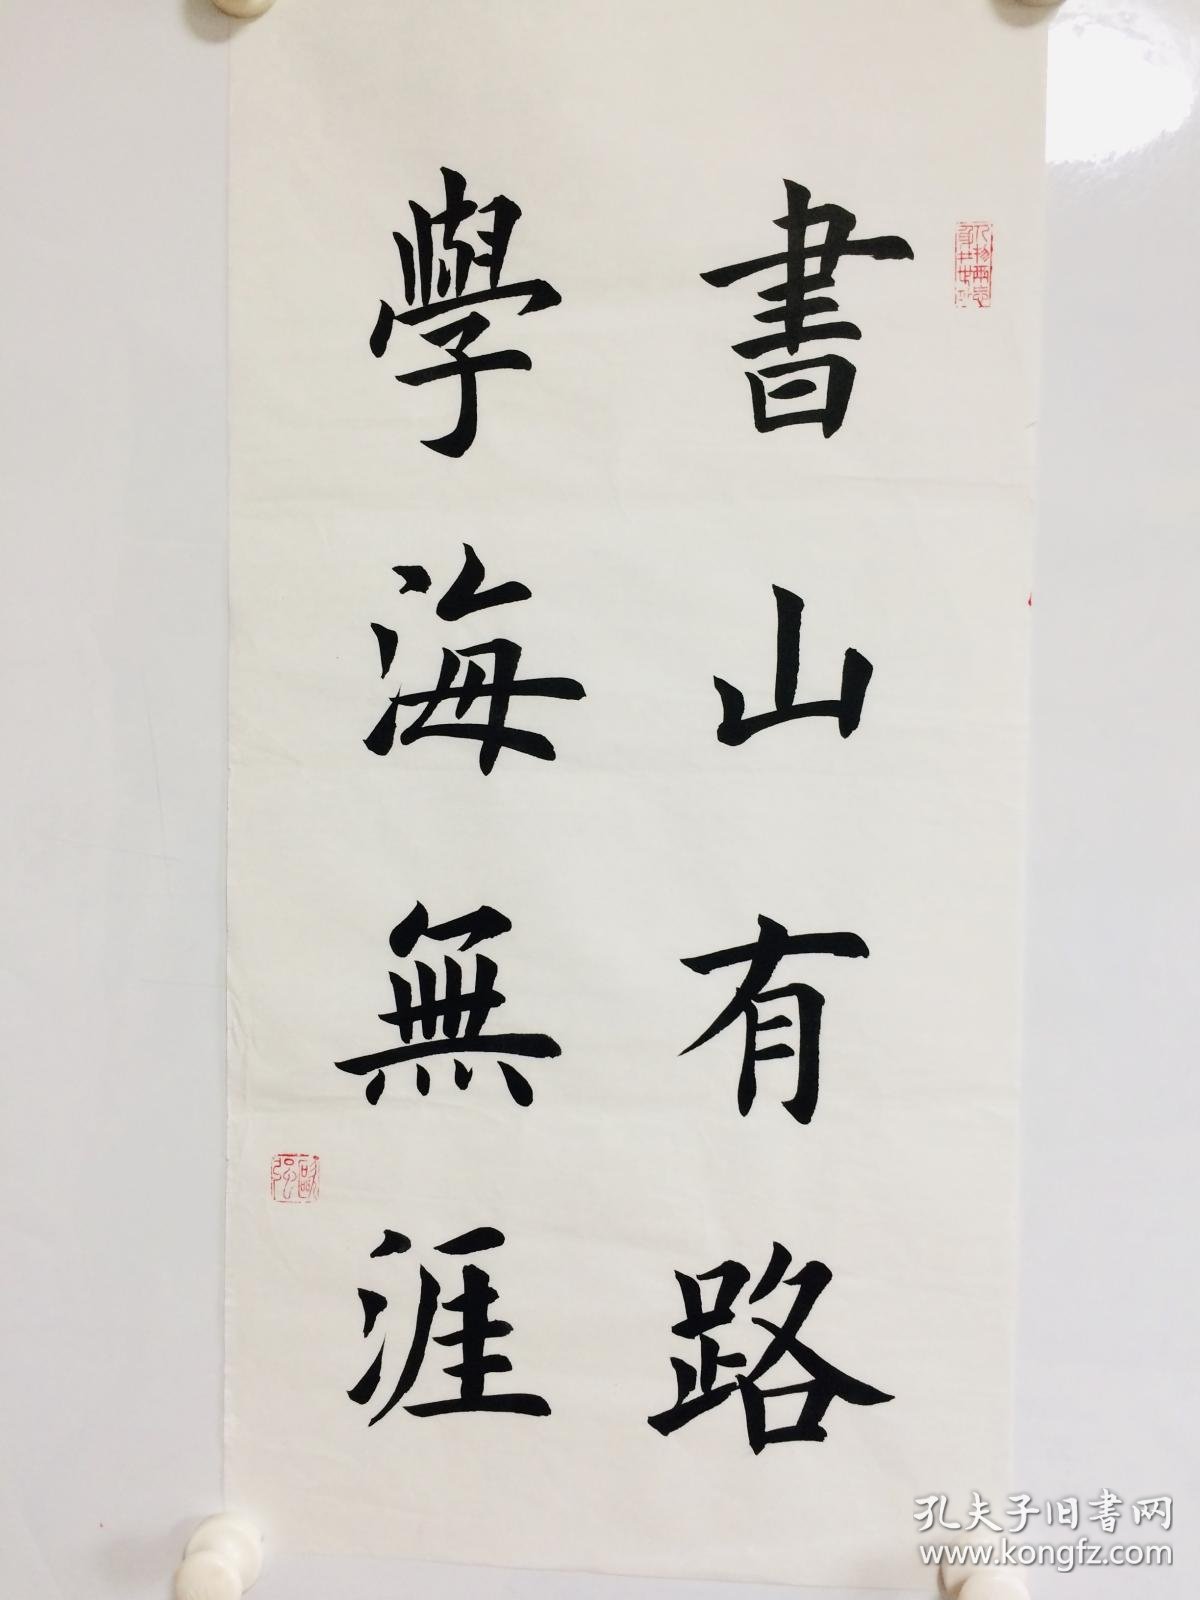 書山有路
學海無涯
孔夫子旧书网
www.kongfz.com